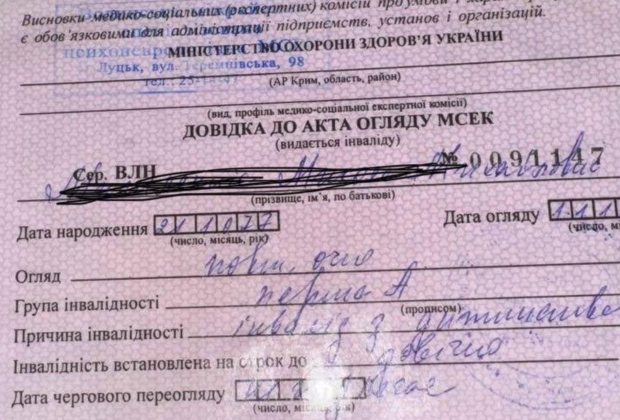 Висновки медико-соціальних (експертних) комісій про умови і характер
є обов'язковими для адміністрації підприємств, установ і організацій.
МІНІСТЕРСТВО ОХОРОНИ ЗДОРОВ'Я УКРАЇНИ
Луцьк, вул. Теремнівська, 98
(АР Крим, область, район)
(вид, профіль медико-соціальної експертної комісії)
ДОВІДКА ДО АКТА ОГЛЯДУ МСЕК
(видається інваліду)
Сер. ВЛН № 0091147
(прізвище, ім'я, по батькові)
Дата народження Дата огляду
(число, місяць, рік) (число, м
Огляд повт. очно
Група інвалідності перша А
(прописом)
Причина інвалідності інвалід з дитинства
Інвалідність встановлена на строк до довічно
Дата чергового переогляду
(число, місяць, рік)